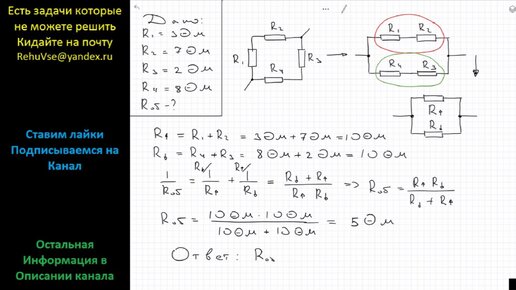 Есть задачи которые
не можете решить
Кидайте на почту
RehuVse@yandex.ru
Ставим лайки
Подписываемся на
Канал
Остальная
Информация в
Описании канала
Дано:
R₁ = 3 Ом
R₂ = 7 Ом
R₃ = 2 Ом
R₄ = 8 Ом
Rоб - ?
R₂
R₁ R₃
R₄
R₁ R₂
R₄ R₃
R↑
R↓
R↑ = R₁ + R₂ = 3 Ом + 7 Ом = 10 Ом
R↓ = R₄ + R₃ = 8 Ом + 2 Ом = 10 Ом
1/Rоб = 1/R↑ + 1/R↓ = (R↓ + R↑)/(R↑ R↓) => Rоб = (R↑ R↓)/(R↓ + R↑)
Rоб = (10 Ом · 10 Ом)/(10 Ом + 10 Ом) = 5 Ом
Ответ: Rоб